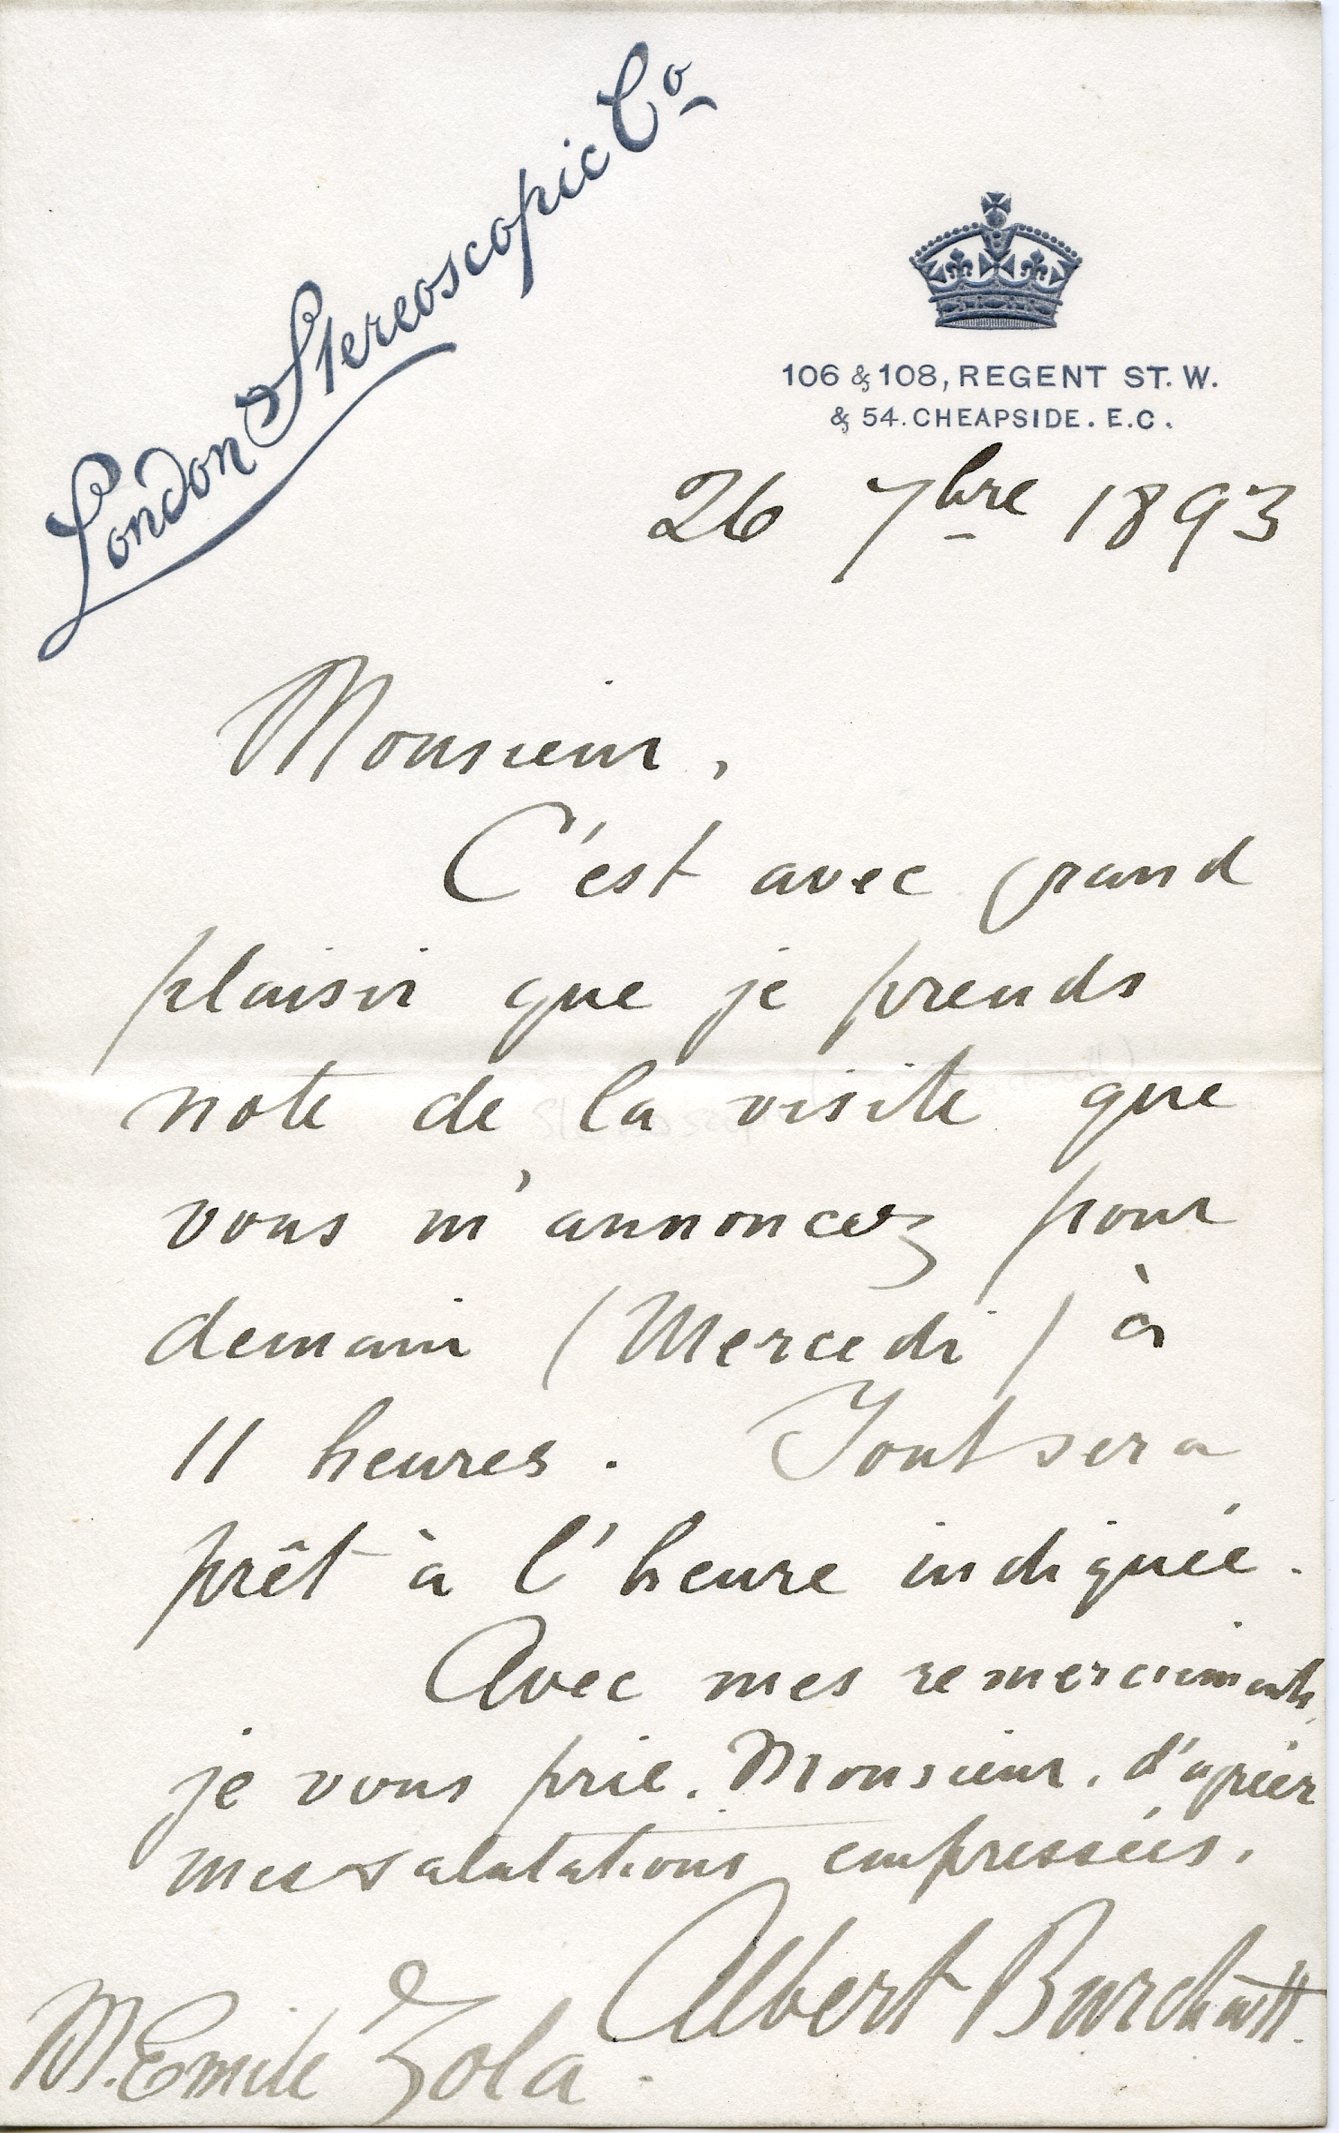 London Stereoscopic Co
106 & 108, REGENT ST. W.
& 54. CHEAPSIDE. E.C.
26 7bre 1893
Monsieur,
C'est avec grand
plaisir que je prends
note de la visite que
vous m'annoncez pour
demain (Mercredi) à
11 heures. Tout sera
prêt à l'heure indiquée.
Avec mes remerciements,
je vous prie, Monsieur, d'agréer
mes salutations empressées.
Albert Burchatt.
M. Emile Zola.